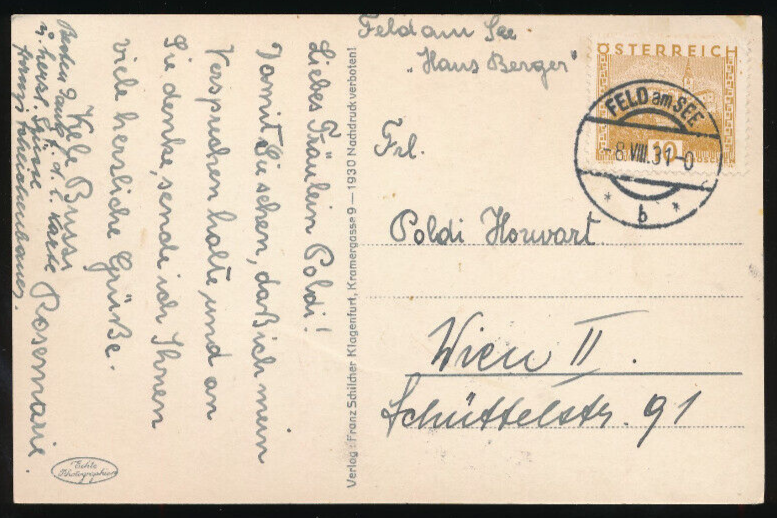 Feld am See
„Hans Berger"
ÖSTERREICH
10
FELD am SEE
-8.VIII.31-0
* b *
Frl.
Poldi Horwart.
Wien II.
Schüttelstr. 91
Verlag: Franz Schilcher Klagenfurt, Kramergasse 9 — 1930 Nachdruck verboten!
Liebes Fräulein Poldi!
Damit Sie sehen, daß ich mein
Versprechen halte, und an
Sie denke, sende ich Ihnen
viele herzliche Grüße.
Kefe Bussi
Rosemarie.
Besten Dank f. d. l. Karte
u. herzl. Grüsse
Echte
Photographie